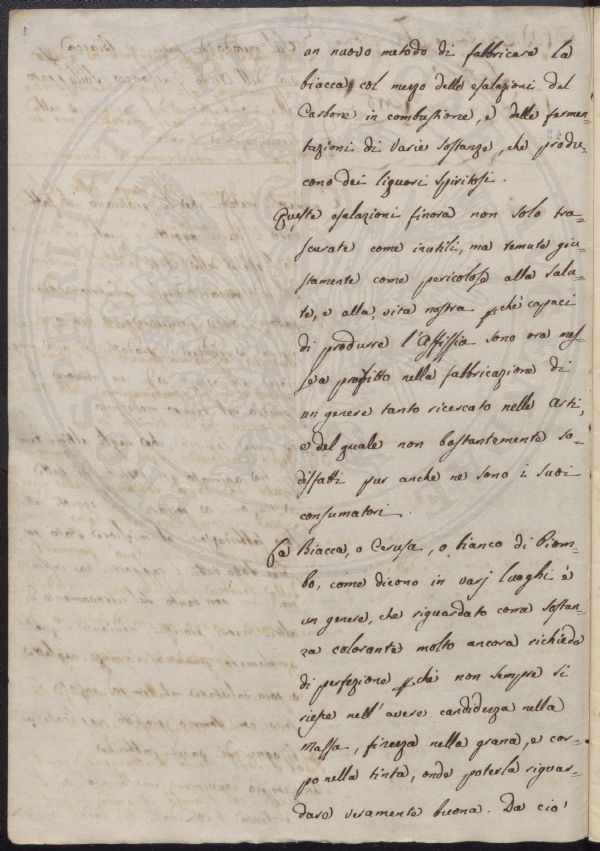 un nuovo metodo di fabbricare la
biacca, col mezzo delle esalazioni del
Carbone in combustione, e delle fermen=
tazioni di varie sostanze, che produ=
cono dei liquori spiritosi.
Queste esalazioni finora non solo tra=
scurate come inutili, ma temute giu=
stamente come pericolose alla salu=
te, e alla vita nostra pchè capaci
di produrre l'Assissia sono ora mes=
se a profitto nella fabbricazione di
un genere tanto ricercato nelle Arti,
e del quale non bastantemente so=
disfatti pur anche ne sono i suoi
consumatori.
La Biacca, o Cerusa, o bianco di Piom=
bo, come dicono in varj luoghi è
un genere, che riguardato come sostan=
za colorante molto ancora richiede
di perfezione pchè non sempre si
riesce nell'avere candidezza nella
Massa, finezza nella grana, e cor=
po nella tinta, onde poterla riguar=
dare veramente buona. Da ciò